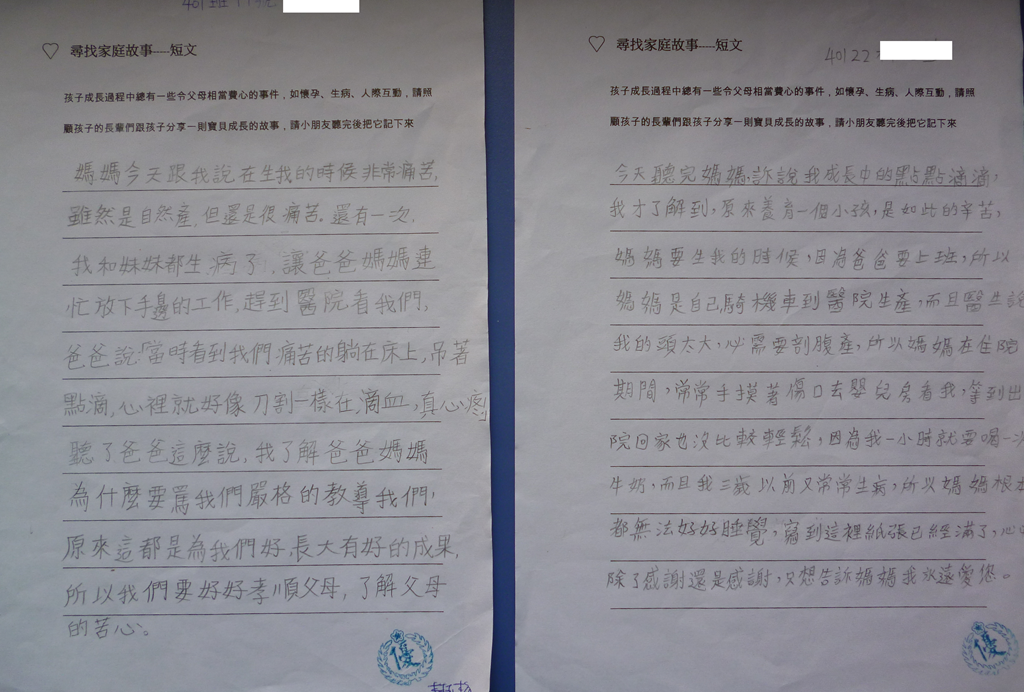 401班
♡ 尋找家庭故事-----短文
孩子成長過程中總有一些令父母相當費心的事件，如懷孕、生病、人際互動，請照
顧孩子的長輩們跟孩子分享一則寶貝成長的故事，請小朋友聽完後把它記下來
媽媽今天跟我說在生我的時候非常痛苦，
雖然是自然產，但還是很痛苦。還有一次，
我和妹妹都生病了，讓爸爸媽媽連
忙放下手邊的工作，趕到醫院看我們，
爸爸說：「當時看到我們痛苦的躺在床上，吊著
點滴，心裡就好像刀割一樣在滴血，真心疼」
聽了爸爸這麼說，我了解爸爸媽媽
為什麼要罵我們嚴格的教導我們，
原來這都是為我們好，長大有好的成果，
所以我們要好好孝順父母，了解父母
的苦心。
優
♡ 尋找家庭故事-----短文
40122
孩子成長過程中總有一些令父母相當費心的事件，如懷孕、生病、人際互動，請照
顧孩子的長輩們跟孩子分享一則寶貝成長的故事，請小朋友聽完後把它記下來
今天聽完媽媽訴說我成長中的點點滴滴，
我才了解到，原來養育一個小孩，是如此的辛苦，
媽媽要生我的時候，因為爸爸要上班，所以
媽媽是自己騎機車到醫院生產，而且醫生說
我的頭太大，必需要剖腹產，所以媽媽在住院
期間，常常手摸著傷口去嬰兒房看我，等到出
院回家也沒比較輕鬆，因為我一小時就要喝一次
牛奶，而且我三歲以前又常常生病，所以媽媽根本
都無法好好睡覺，寫到這裡紙張已經滿了，心中
除了感謝還是感謝，只想告訴媽媽我永遠愛您。
優